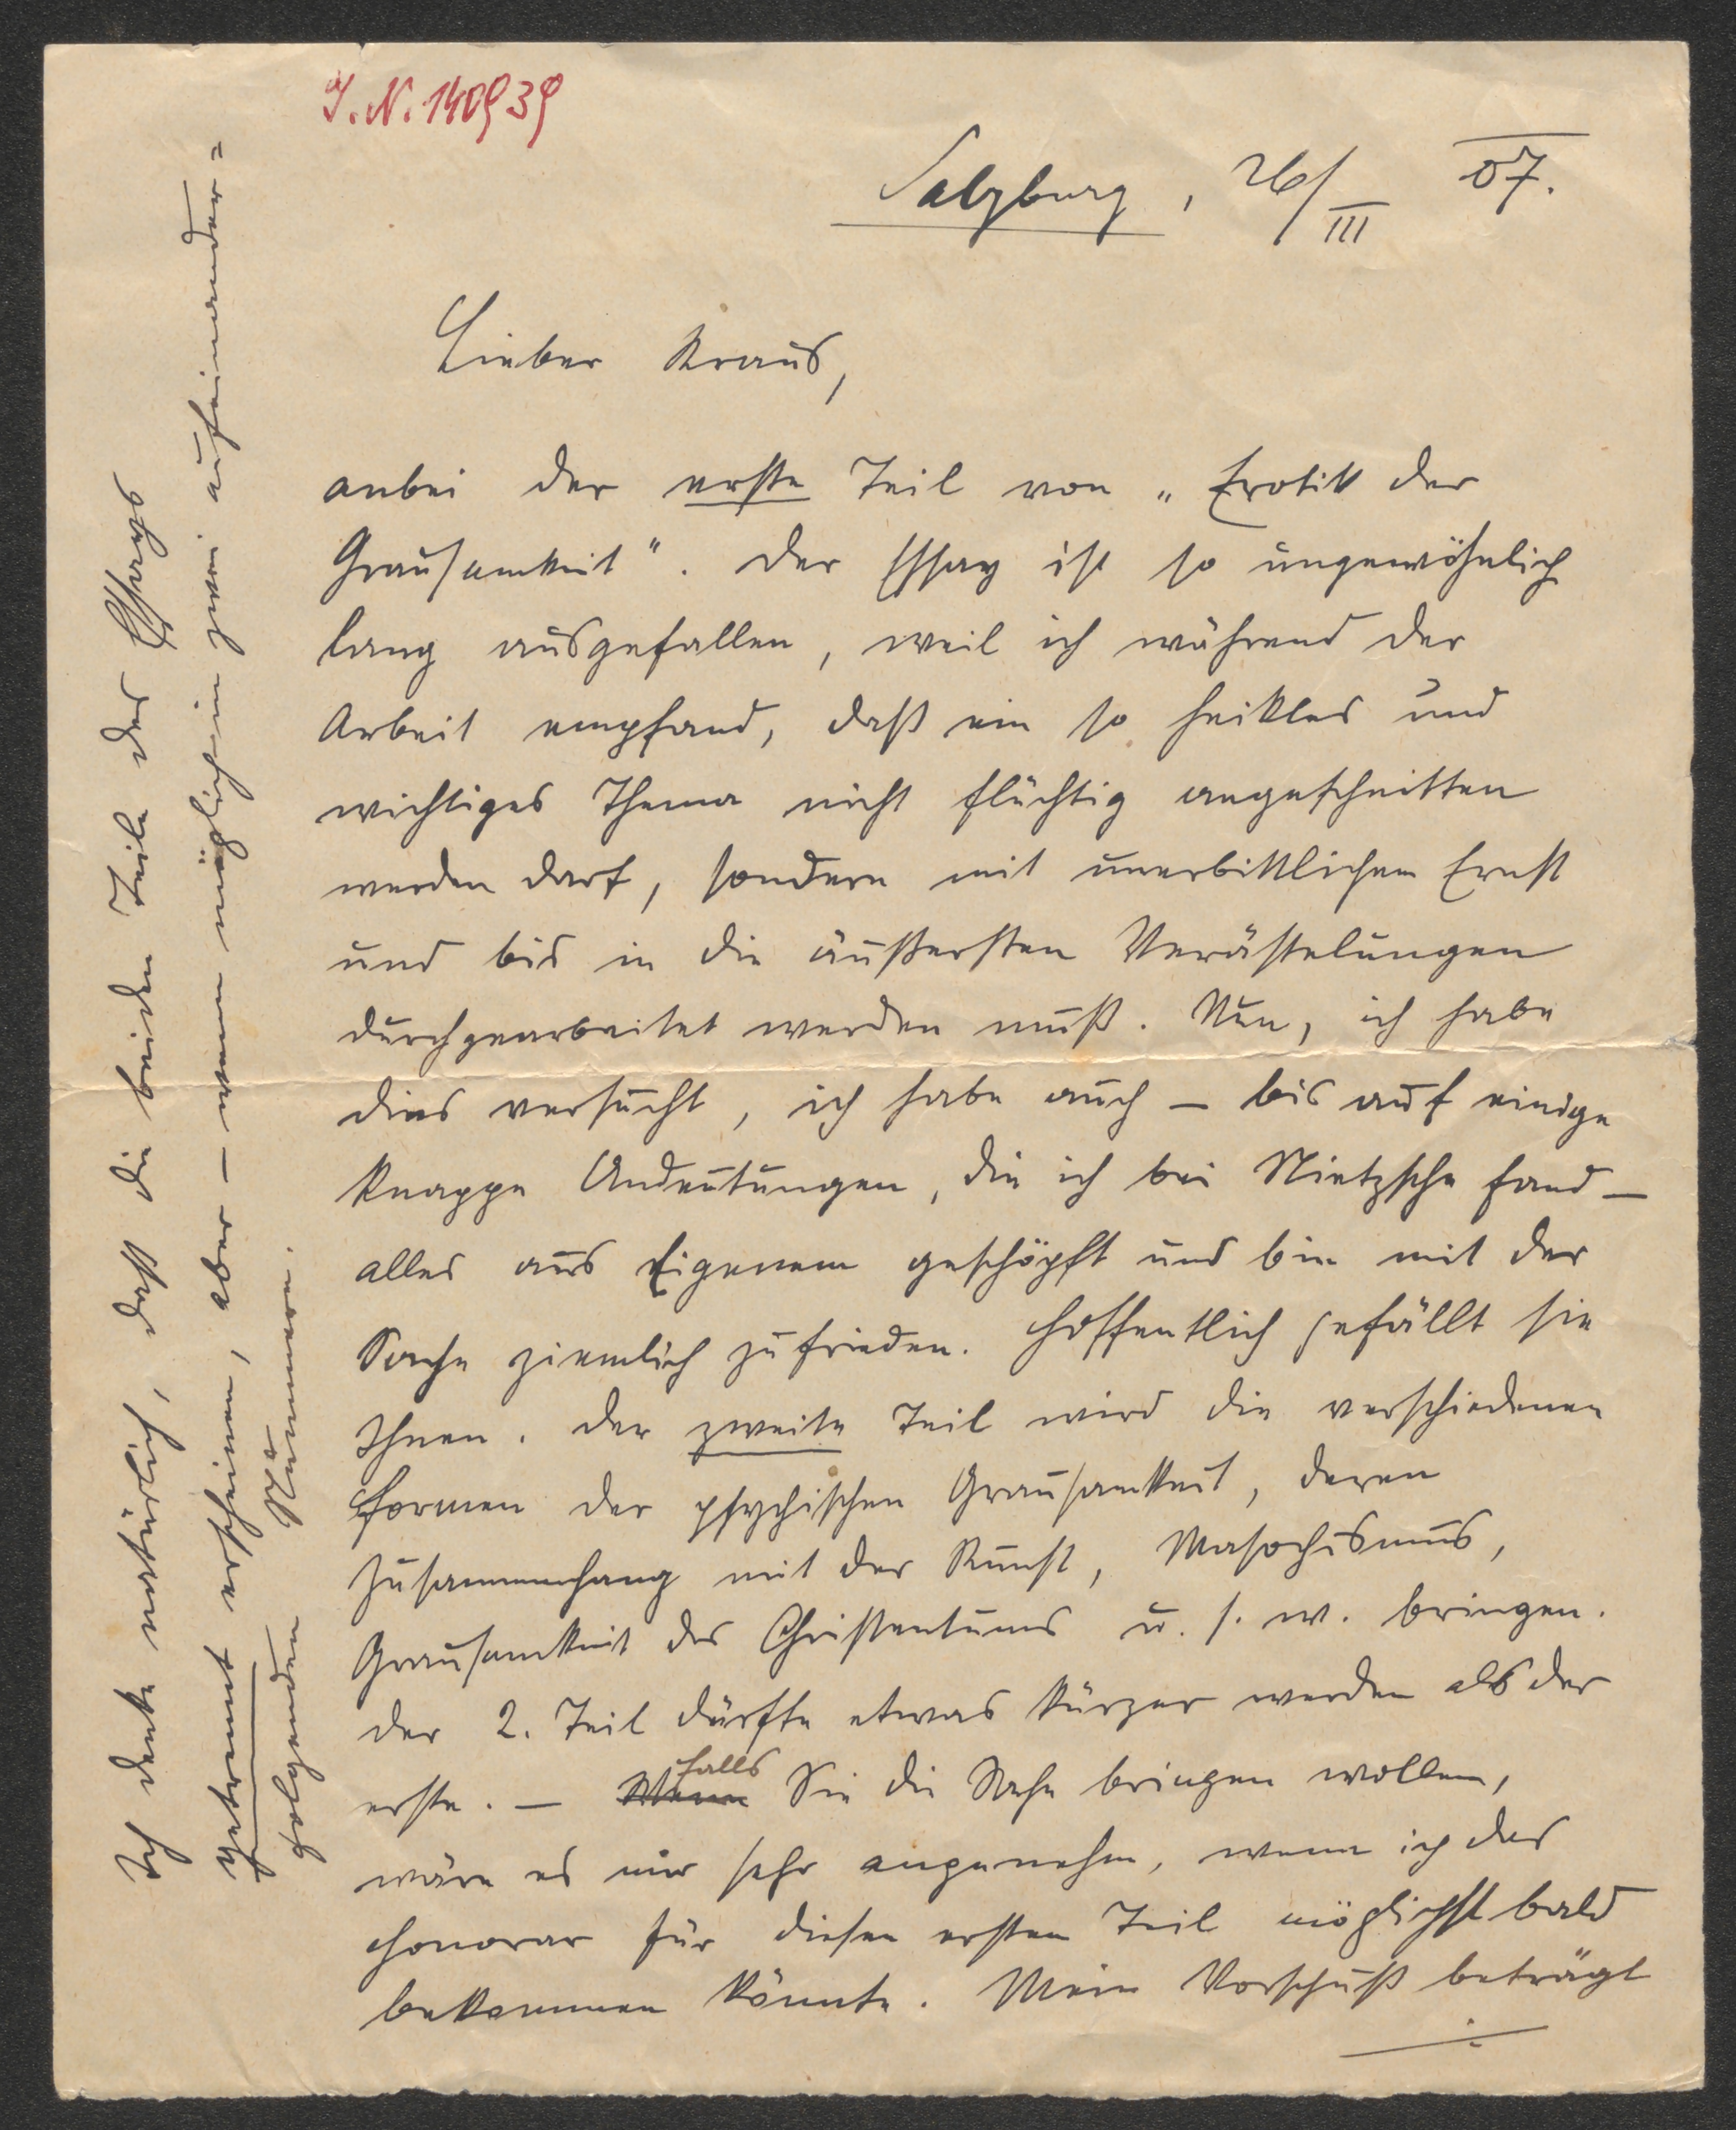 I. N. 140939
Salzburg, 26/III 07.
Lieber Kraus,
anbei der erste Teil von „Erotik der
Grausamkeit“. Der Essay ist so ungewöhnlich
lang ausgefallen, weil ich während der
Arbeit empfand, daß ein so heikles und
wichtiges Thema nicht flüchtig angeschnitten
werden darf, sondern mit unerbittlichem Ernst
und bis in die äußersten Verästelungen
durchgearbeitet werden muß. Nun, ich habe
dies versucht, ich habe auch – bis auf einige
knappe Andeutungen, die ich bei Nietzsche fand –
alles aus Eigenem geschöpft und bin mit der
Sache ziemlich zufrieden. Hoffentlich gefällt sie
Ihnen. Der zweite Teil wird die verschiedenen
Formen der psychischen Grausamkeit, deren
Zusammenhang mit der Kunst, Masochismus,
Grausamkeit des Christentums u. s. w. bringen.
Der 2. Teil dürfte etwas kürzer werden als der
erste. – Wenn falls Sie die Sache bringen wollen,
wäre es mir sehr angenehm, wenn ich das
Honorar für diesen ersten Teil möglichst bald
bekommen könnte. Mein Vorschuß beträgt
Ich denke natürlich, daß die beiden Teile des Essays
getrennt erscheinen, aber – wenn möglich in zwei aufeinander=
folgenden Nummern.